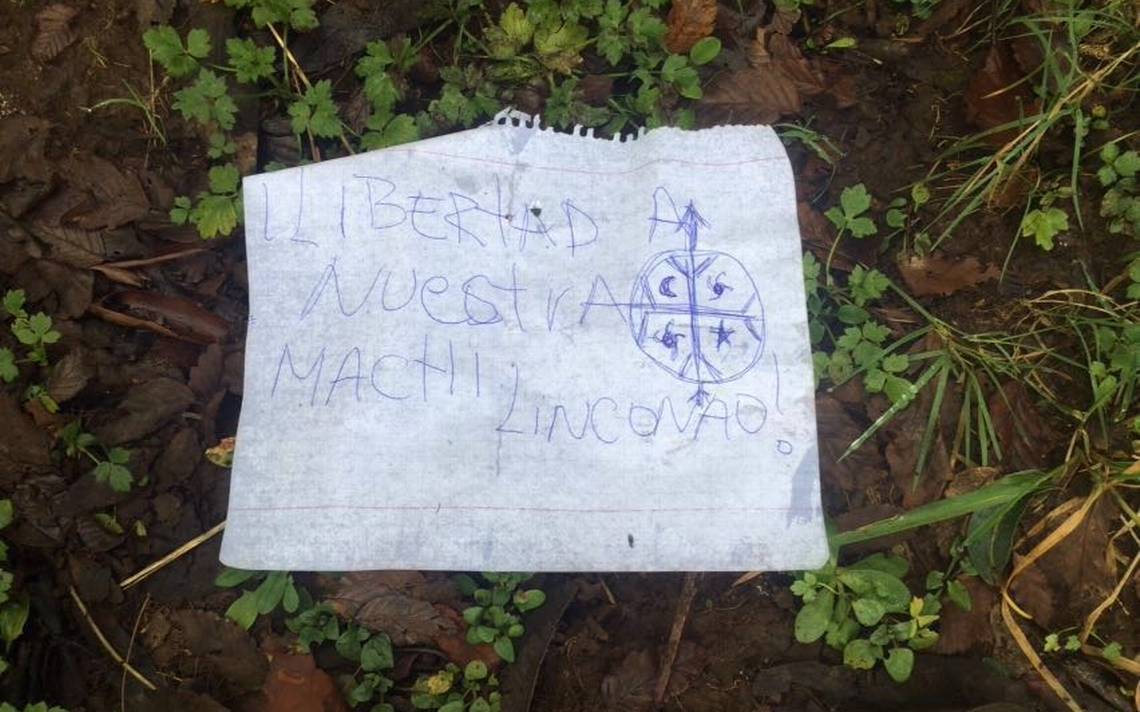 ¡LIBERTAD A
NUestrA
MACHI LINCONAO!